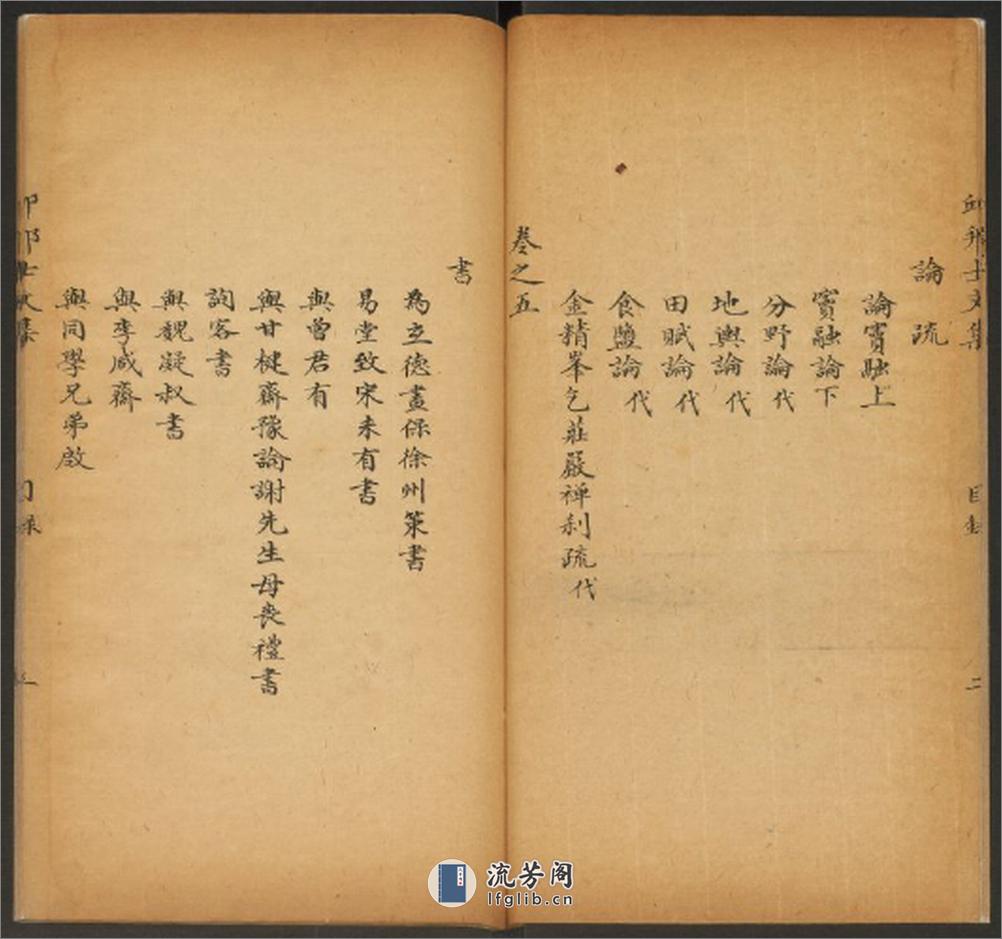 邱邦士文集 目錄 二
論疏
論竇融上
竇融論下
分野論代
地輿論代
田賦論代
食鹽論代
金精峯乞莊嚴禪刹疏代
卷之五
書
為立德畫保徐州策書
易堂致宋未有書
與曾君有
與甘楗齋豫論謝先生母喪禮書
詢客書
與魏凝叔書
與李咸齋
與同學兄弟啟
邱邦士文集 目錄 三
流芳阁
lfglib.cn